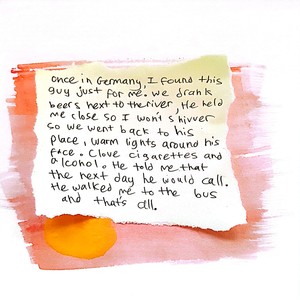 once in Germany, I found this
guy just for me. we drank
beers next to the river, He held
me close so I won't shivver
so we went back to his
place, warm lights around his
face. Clove cigarettes and
alcohol. He told me that
the next day he would call.
He walked me to the bus
and that's all.